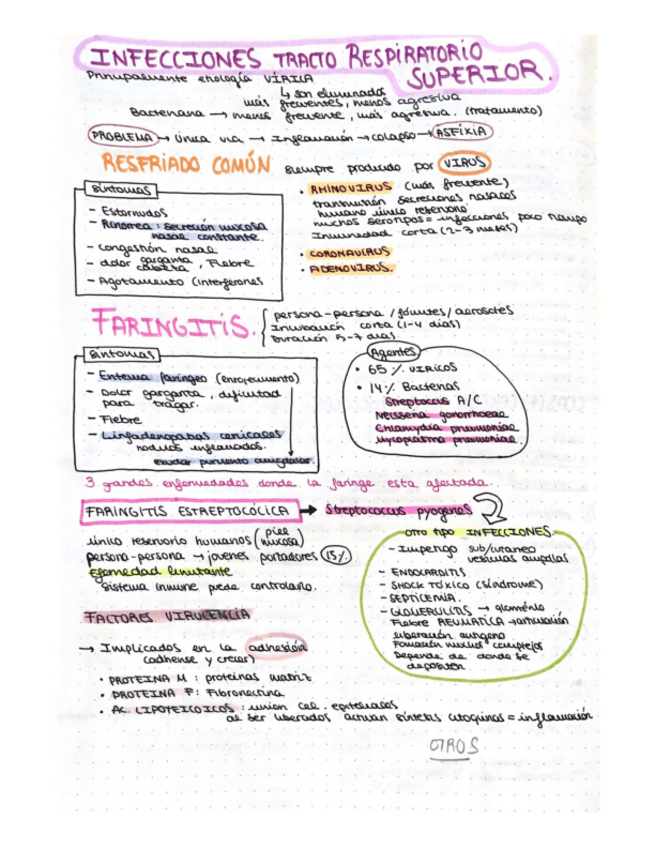 INFECCIONES TRACTO RESPIRATORIO
SUPERIOR.
Principalmente etiología VÍRICA
↳ son eliminados
más frecuentes, menos agresiva
Bacteriana → menos frecuente, más agresiva. (tratamiento)
PROBLEMA → única vía → Inflamación → colapso → ASFIXIA
RESFRIADO COMÚN siempre producido por VIRUS
Síntomas
- Estornudos
- Rinorrea: secreción mucosa
nasal constante.
- congestión nasal
- dolor garganta, Fiebre
cabeza
- Agotamiento (interferones
• RHINOVIRUS (más frecuente)
transmisión secreciones nasales
humano único reservorio
muchos serotipos = infecciones poco tiempo
Inmunidad corta (2-3 meses)
• CORONAVIRUS
• ADENOVIRUS.
FARINGITIS.
persona-persona / fómites / aerosoles
Incubación corta (1-4 días)
Duración 5-7 días
Síntomas
- Eritema faríngeo (enrojecimiento)
- Dolor garganta, dificultad
para tragar.
- Fiebre
- Linfadenopatías cervicales
nódulos inflamados.
exudar purulento amigdalar.
Agentes
• 65 % VÍRICOS
• 14% Bacterias
Streptococus A/C
Neisseria gonorrhoeae
Chlamydia pneumoniae
Mycoplasma pneumoniae.
3 grandes enfermedades donde la faringe esta afectada.
FARINGITIS ESTREPTOCÓCICA → Streptococcus pyogenes
único reservorio humanos (piel
mucosa)
persona-persona → jovenes portadores (15%)
Efermedad limitante
Sistema inmune puede controlarlo.
OTRO tipo INFECCIONES
- Impetigo sub/cutaneo
vesículas amplias
- ENDOCARDITIS
- SHOCK TÓXICO (Síndrome)
- SEPTICEMIA.
- GLOMERULITIS → glomérulo
Fiebre REUMÁTICA → activación
liberación antígeno
Formación inmuno complejos
Depende de donde se
depositen
FACTORES VIRULENCIA
→ Implicados en la adhesión
(adherise y crecer)
• PROTEINA M: proteinas matriz
• PROTEINA F: Fibronectina
• AC. LIPOTEICOICOS: union cel. epiteliales
al ser liberados actuan síntesis citoquinas = inflamación
OTROS